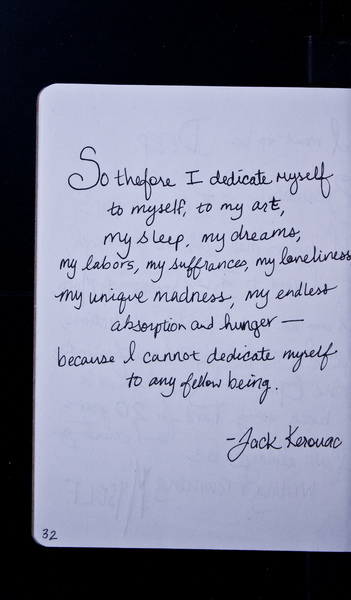 So thefore I dedicate myself
to myself, to my art,
my sleep, my dreams,
my labors, my suffrances, my loneliness
my unique madness, my endless
absorption and hunger —
because I cannot dedicate myself
to any fellow being.
-Jack Kerouac
32